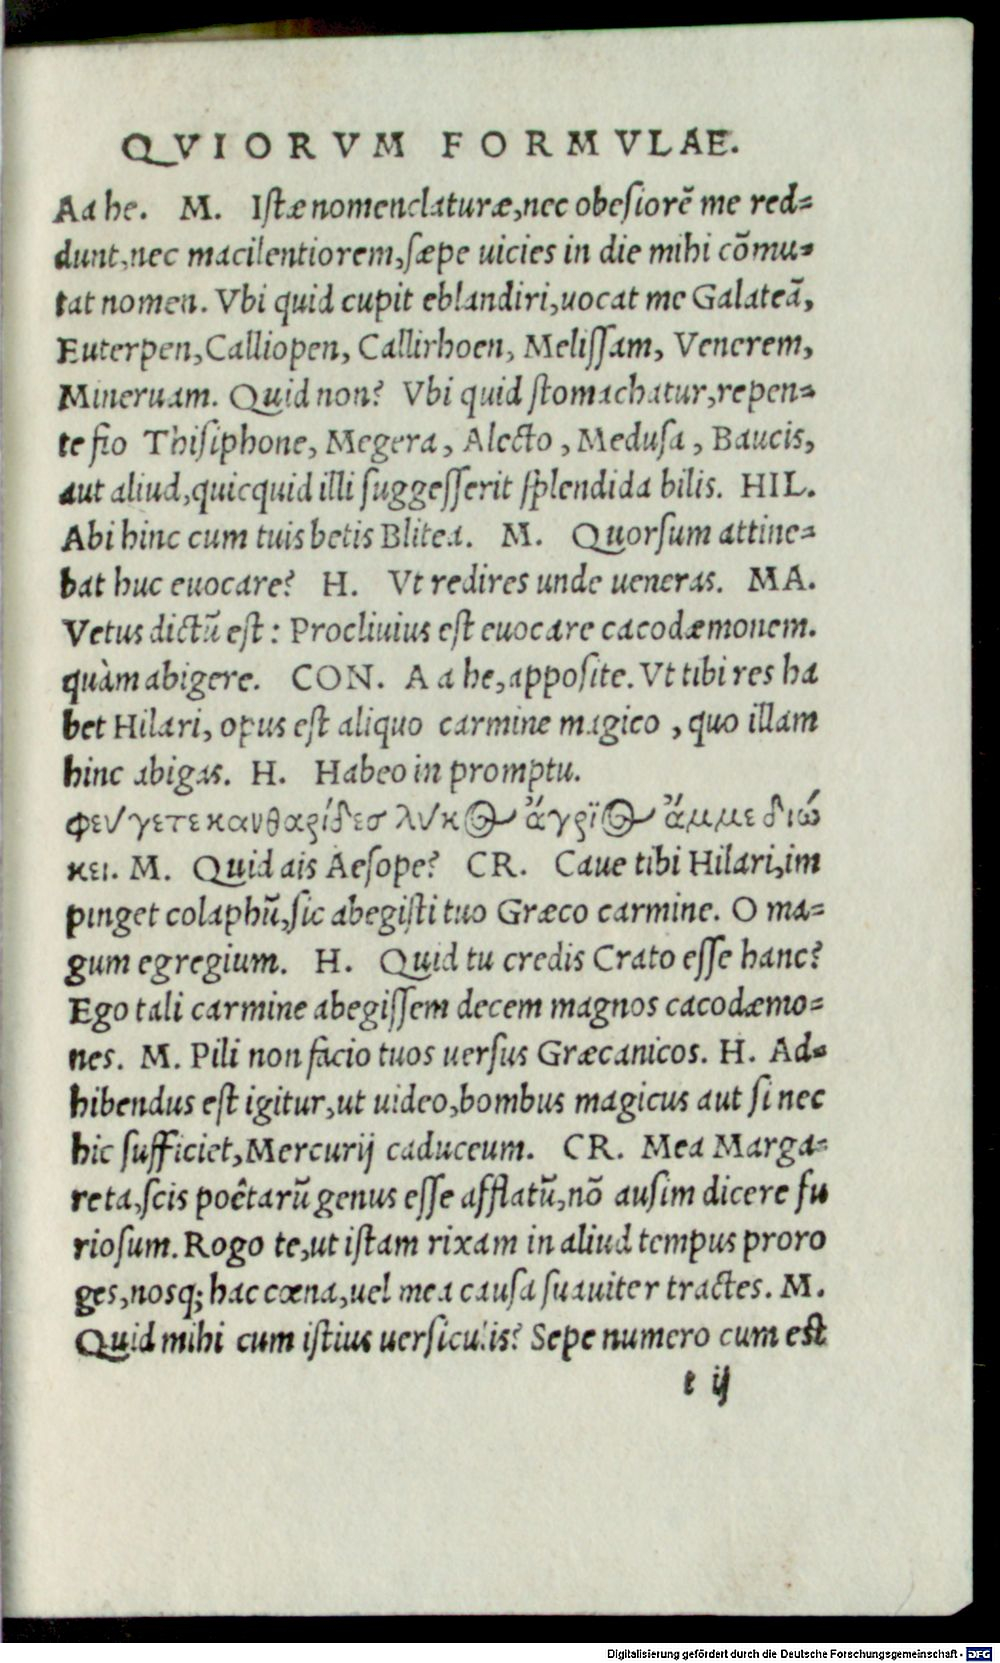 QVIORVM FORMVLAE.
Aa he. M. Istæ nomenclaturæ, nec obesiorē me red=
dunt, nec macilentiorem, sæpe uicies in die mihi cōmu=
tat nomen. Vbi quid cupit eblandiri, uocat me Galateā,
Euterpen, Calliopen, Callirhoen, Melissam, Venerem,
Mineruam. Quid non? Vbi quid stomachatur, repen=
te fio Thisiphone, Megera, Alecto, Medusa, Baucis,
aut aliud, quicquid illi suggesserit splendida bilis. HIL.
Abi hinc cum tuis betis Blitea. M. Quorsum attine=
bat huc euocare? H. Vt redires unde ueneras. MA.
Vetus dictū est: Procliuius est euocare cacodæmonem.
quàm abigere. CON. A a he, apposite. Vt tibi res ha
bet Hilari, opus est aliquo carmine magico, quo illam
hinc abigas. H. Habeo in promptu.
φεύγετε κανθαρίδεσ λύκος ἄγριος ἄμμε διώ
κει. M. Quid ais Aesope? CR. Caue tibi Hilari, im
pinget colaphū, sic abegisti tuo Græco carmine. O ma=
gum egregium. H. Quid tu credis Crato esse hanc?
Ego tali carmine abegissem decem magnos cacodæmo=
nes. M. Pili non facio tuos uersus Græcanicos. H. Ad=
hibendus est igitur, ut uideo, bombus magicus aut si nec
hic sufficiet, Mercurij caduceum. CR. Mea Marga=
reta, scis poêtarū genus esse afflatū, nō ausim dicere fu
riosum. Rogo te, ut istam rixam in aliud tempus proro
ges, nosq; hac cœna, uel mea causa suauiter tractes. M.
Quid mihi cum istius uersiculis? Sepe numero cum est
e ij
Digitalisierung gefördert durch die Deutsche Forschungsgemeinschaft - DFG